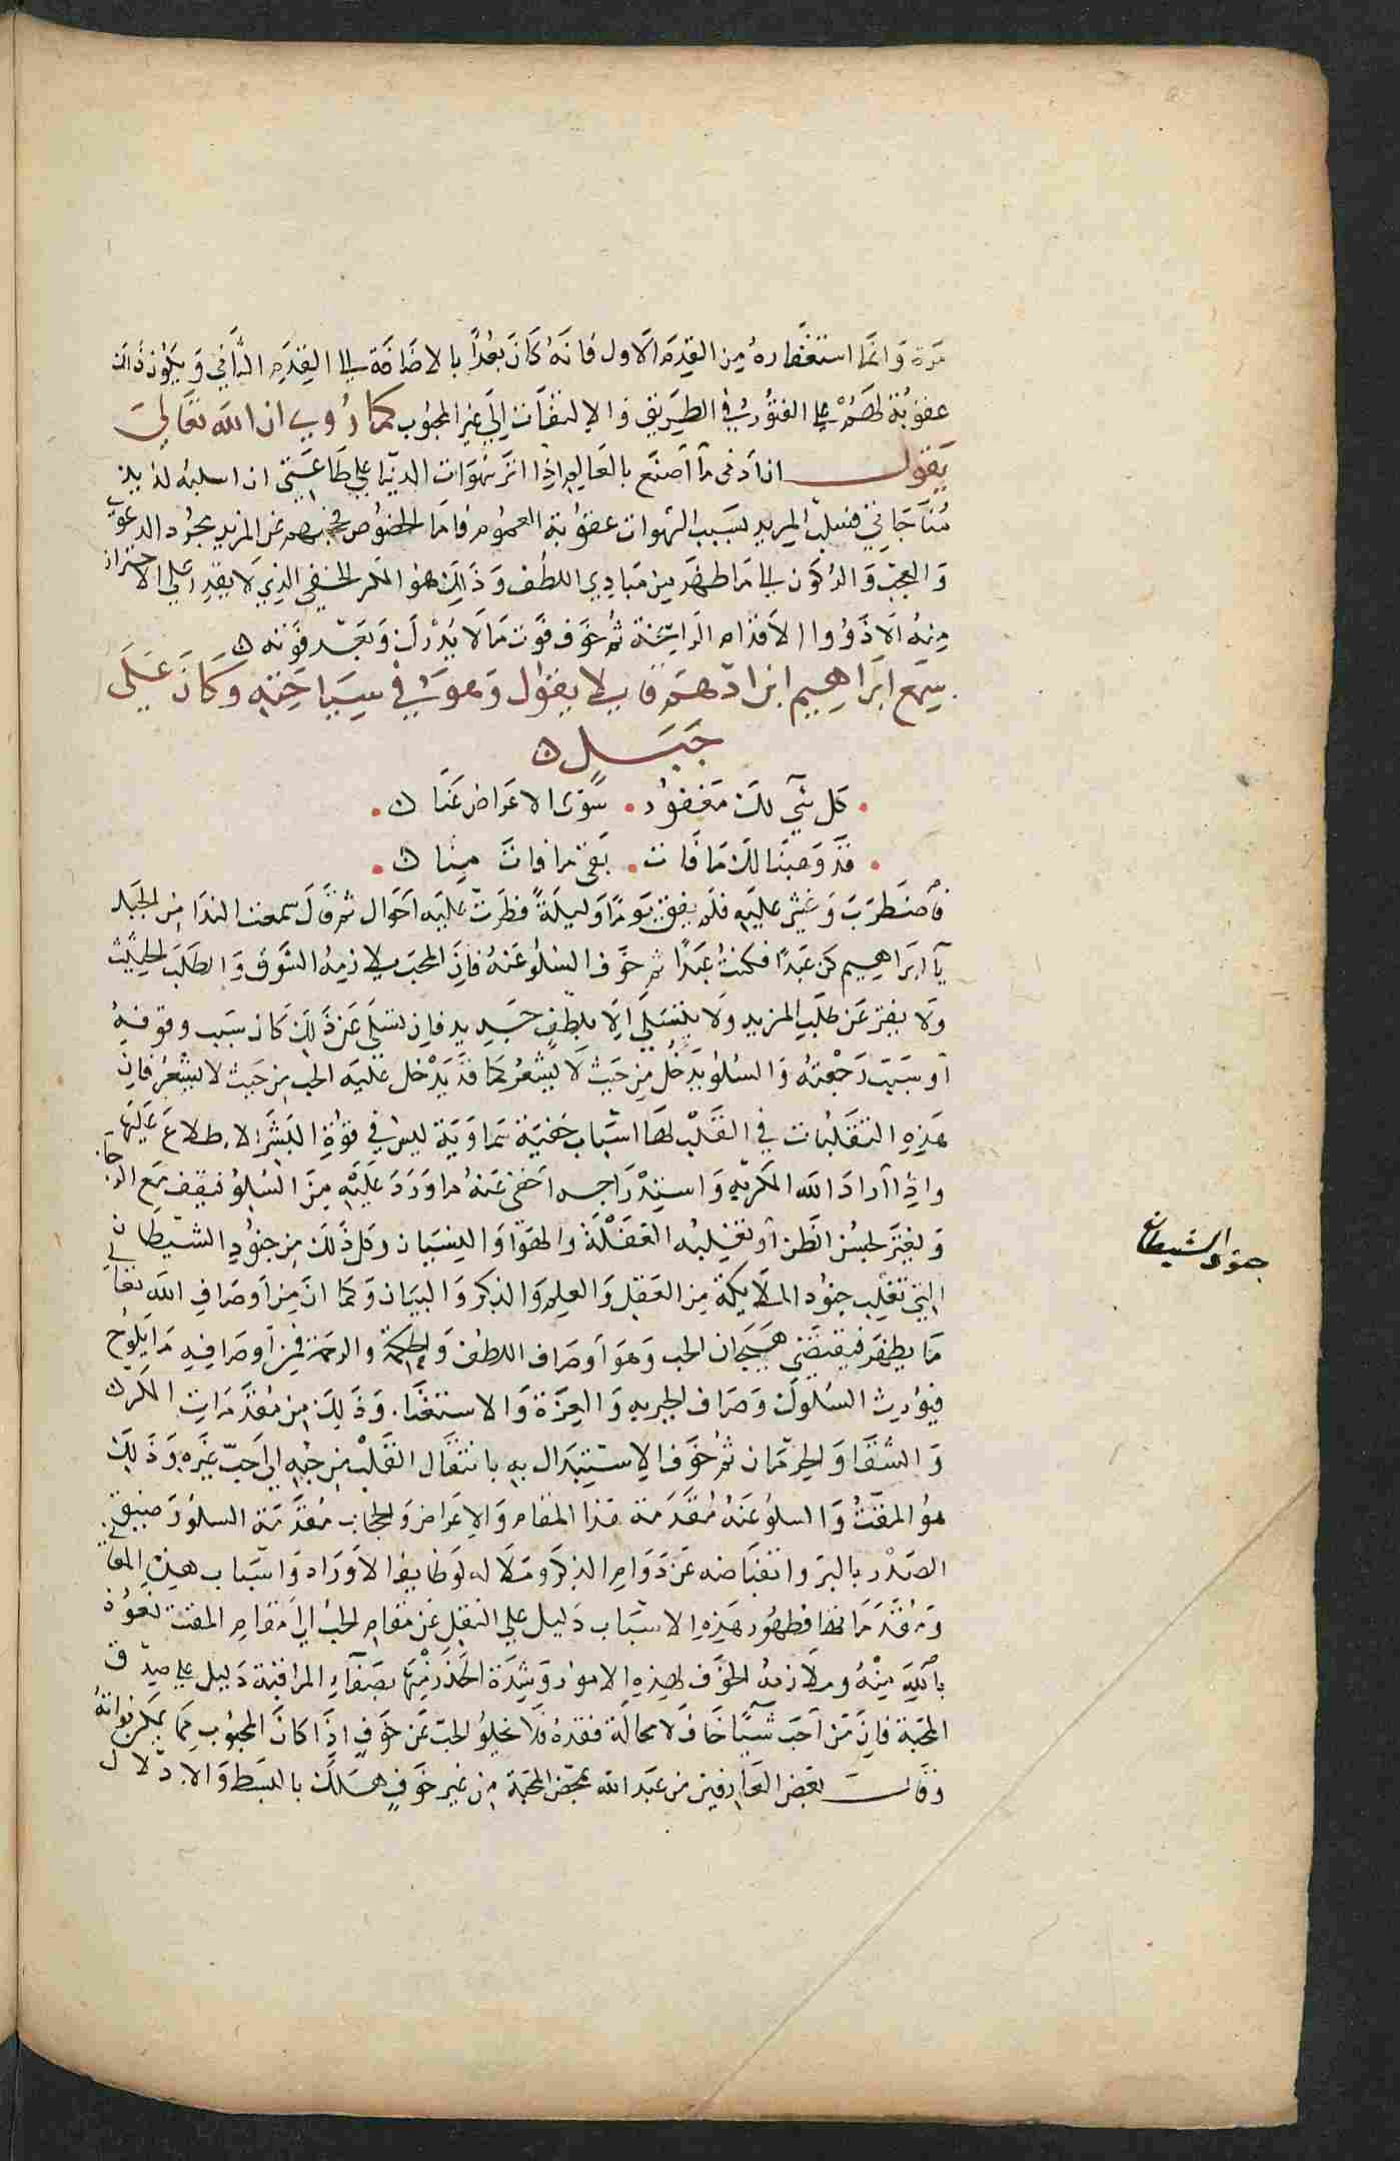 مرة وانما استغفاره من القدم الاول فانه كان بعدا بالاضافة الى القدم الثاني ويكون ذلك
عقوبة لهم على الفتور في الطريق والالتفات الى غير المحبوب كما روي ان الله تعالى
يقول ان ادنى ما اصنع بالعالم اذا اثر شهوات الدنيا على طاعتي ان اسلبه لذيذ
مناجاتي فسلب المزيد بسبب الشهوات عقوبة العموم فاما الخصوص فيحجبهم عن المزيد مجرد الدعوى
والعجب والركون الى ما ظهر من مبادي اللطف وذلك هو المكر الخفي الذي لا يقدر على الاحتراز
منه الا ذووا الاقدام الراسخة ثم خوف فوت ما لا يدرك وبعد فوته ه
سمع ابراهيم ابن ادهم قايلا يقول وهو في سياحته وكان على
جبل ه
كل شي لك مغفور . سوى الاعراض عنا ه .
قد وهبنا لك ما فات . بقى ما فات منا ه .
فاضطرب وغشي عليه فلم يفق يوما وليلة فطرت عليه احوال ثم قال سمعت الندا من الجبل
يا ابراهيم كن عبدا فكنت عبدا ثم خوف السلو عنه فان المحب يلازمه الشوق والطلب الحثيث
ولا يفتر عن طلب المزيد ولا يتسلى الا بلطف جديد فان تسلى عن ذلك كان سبب وقوفه
او سبب رجعته والسلو يدخل من حيث لا يشعر كما قد يدخل عليه الحب من حيث لا يشعر فان
هذه التقلبات في القلب لها اسباب خفية سماوية ليس في قوة البشر الاطلاع عليها
واذا اراد الله المكر به واستدراجه اخفى عنه ما ورد عليه من السلو فيقف مع الرجا
ويغتر بحسن الظن او تغلبه الغفلة والهوا والنسيان وكل ذلك من جنود الشيطان
التي تغلب جنود الملايكة من العقل والعلم والذكر والبيان وكما ان من اوصاف الله تعالى
ما يظهر فيقتضي هيجان الحب وهو اوصاف اللطف والحكمة والرحمة فمن اوصافه ما يلوح
فيورث السلو كاوصاف الجبرية والعزة والاستغنا . وذلك من مقدمات المكر
والشقا والحرمان ثم خوف الاستبدال به بانتقال القلب من حبه الى حب غيره وذلك
هو المقت والسلو عنه مقدمة هذا المقام والاعراض والحجاب مقدمة السلو وضيق
الصدر بالبر وانقباضه عن دوام الذكر وملاله لوظايف الاوراد واسباب هذه المعاني
ومقدماتها فظهور هذه الاسباب دليل على النقل عن مقام الحب الى مقام المقت نعوذ
بالله منه وملازمة الخوف لهذه الامور وشدة الحذر منها بصفاء المراقبة دليل على صدق
المحبة فان من احب شيئا خاف لا محالة فقده فلا يخلو الحب عن خوف اذا كان المحبوب مما يمكن فواته
وقال بعض العارفين من عبد الله بمحض المحبة من غير خوف هلك بالبسط والادلال
جنود الشيطان